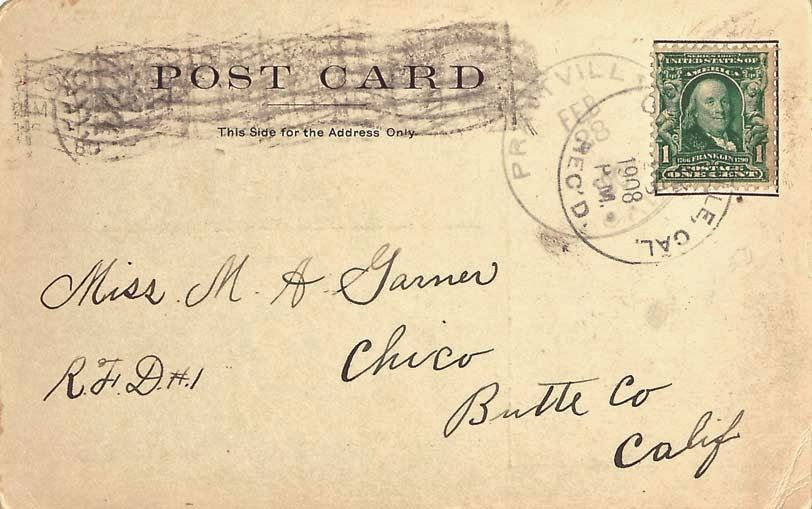 POST CARD
This Side for the Address Only
SERIES 1902
UNITED STATES OF
AMERICA
1 1706 FRANKLIN 1790 1
POSTAGE
ONE CENT
FEB
REC'D.
1908
P.M.
CAL.
Miss. M. A. Garner
R.F.D.#.1
Chico
Butte Co
Calif